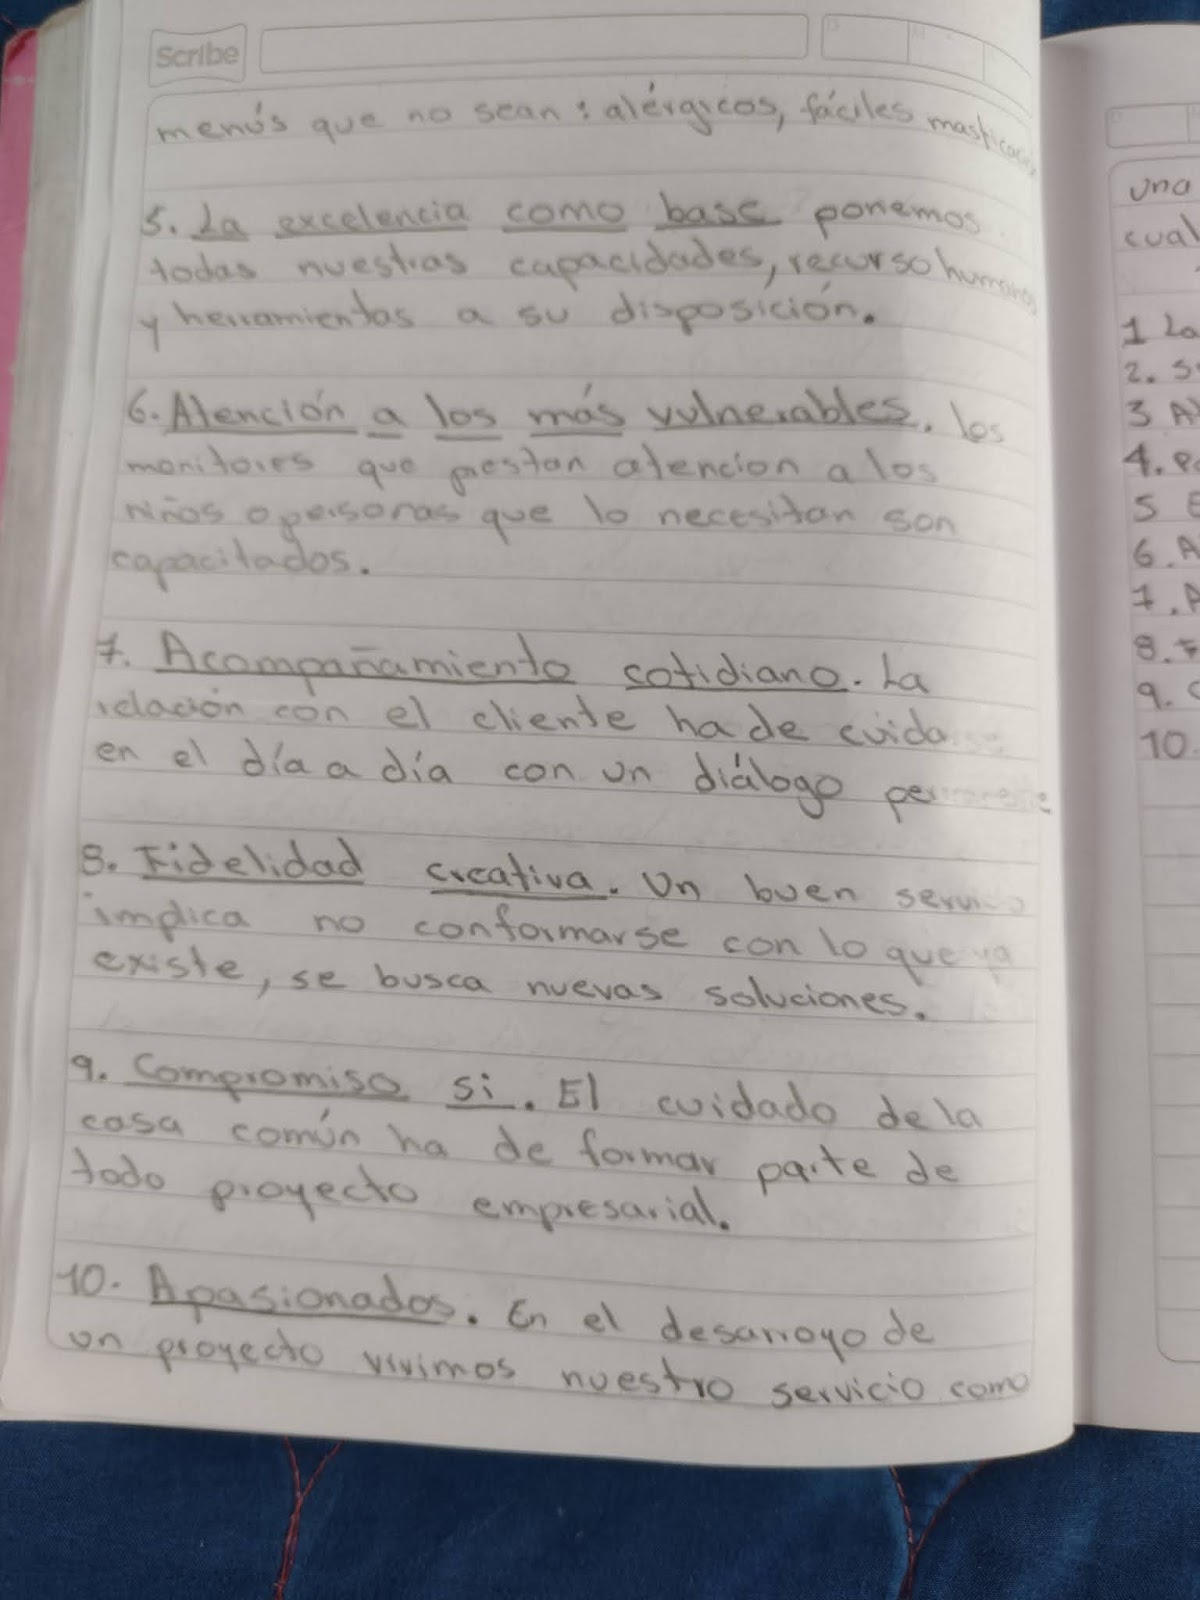 Scribe
menús que no sean : alérgicos, fáciles
5. La excelencia como base ponemos
todas nuestras capacidades, recurso humanos
y herramientas a su disposición.
6. Atención a los más vulnerables. los
monitores que prestan atencion a los
niños o personas que lo necesitan son
capacitados.
7. Acompañamiento cotidiano. La
relación con el cliente ha de cuidarse
en el día a día con un diálogo permanente
8. Fidelidad creativa. Un buen servicio
implica no conformarse con lo que ya
existe, se busca nuevas soluciones.
9. Compromiso si. El cuidado de la
casa común ha de formar parte de
todo proyecto empresarial.
10. Apasionados. En el desarroyo de
un proyecto vivimos nuestro servicio como
una
cual
1 La
2. S
3 A
4. P
5 E
6. A
7. A
8. F
9. C
10